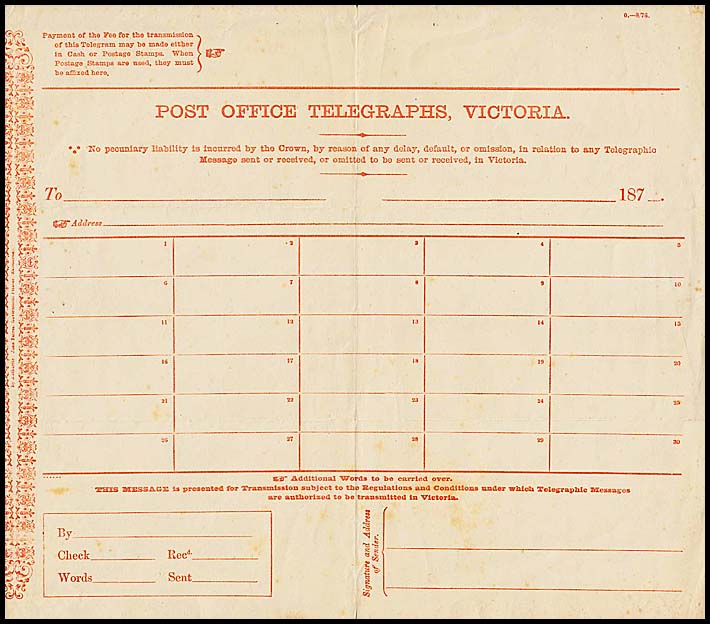 O.—8/74.
Payment of the Fee for the transmission
of this Telegram may be made either
in Cash or Postage Stamps. When
Postage Stamps are used, they must
be affixed here.
POST OFFICE TELEGRAPHS, VICTORIA.
No pecuniary liability is incurred by the Crown, by reason of any delay, default, or omission, in relation to any Telegraphic
Message sent or received, or omitted to be sent or received, in Victoria.
To 187 .
Address
1 2 3 4 5
6 7 8 9 10
11 12 13 14 15
16 17 18 19 20
21 22 23 24 25
26 27 28 29 30
Additional Words to be carried over.
THIS MESSAGE is presented for Transmission subject to the Regulations and Conditions under which Telegraphic Messages
are authorized to be transmitted in Victoria.
By
Check Recd.
Words Sent
Signature and Address
of Sender.